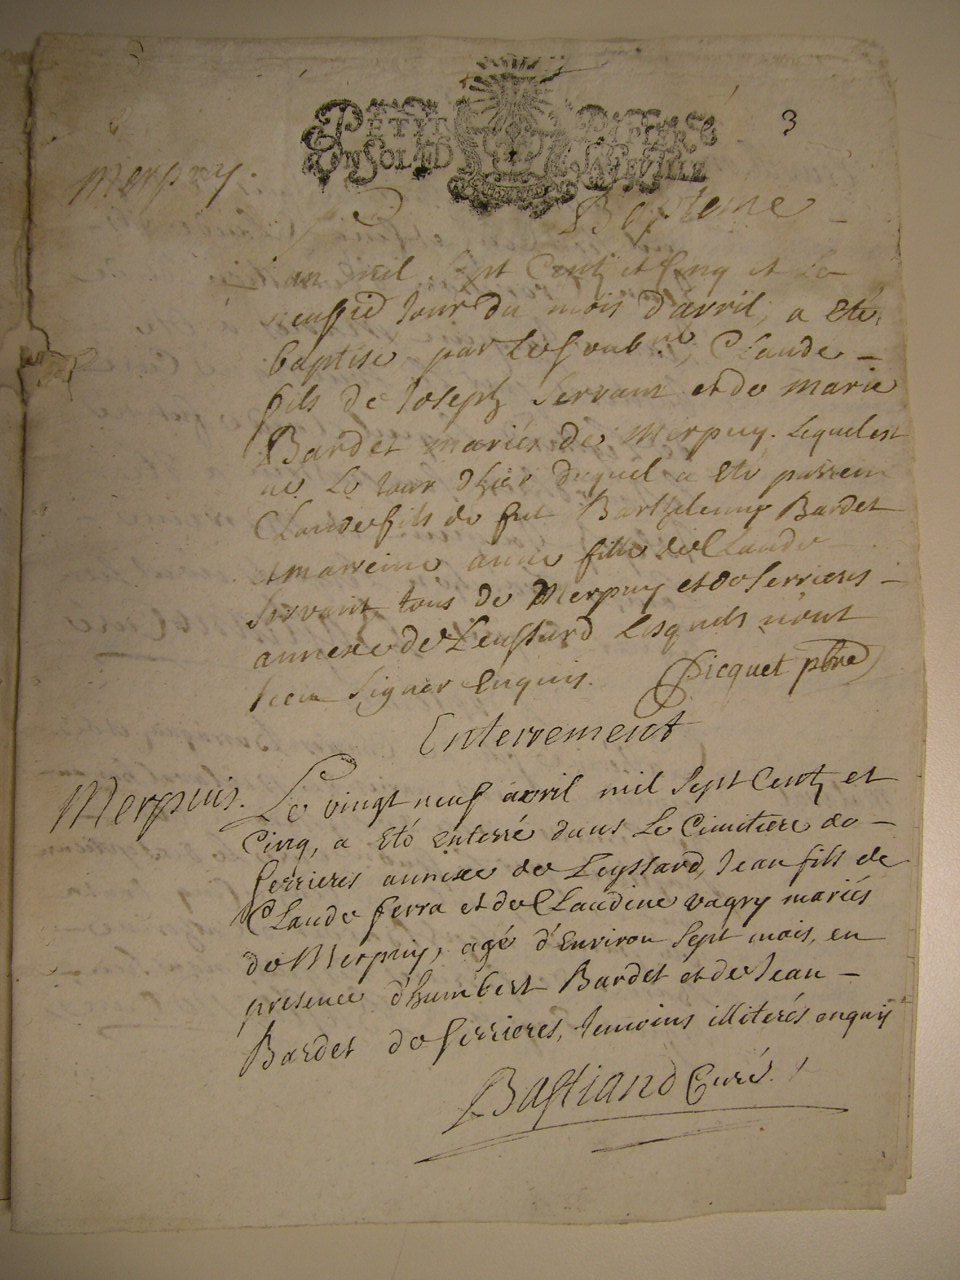 PETIT PAPIER
UN SOL 4 D LA FEUILLE
3
Merpuy.
Baptême
L'an mil sept Centz et Cinq et le
neufvie Jour du mois d'avril, a eté
baptise, par Le soubné, Claude
fils de Joseph Servant et de marie
Bardet mariés de Merpuy. Lequel est
né Le Jour d'hier duquel a eté parrein
Claude fils de feu Barthelemy Bardet
et marreine anne fille de Claude
Servant tous de Merpuy et de Serrieres
annexe de Leyssard Lesquels n'ont
sceu Signer Enquis. Picquet pbre
Enterrement
Merpuis.
Le vingt neuf avril mil Sept Centz et
Cinq, a Eté enterré dans Le Cimitiere de
Serrieres annexe de Leyssard, Jean fils de
Claude ferra et de Claudine vagry mariés
de Merpuy, agé d'Environ Sept mois, en
presence d'humbert Bardet et de Jean
Bardet de Serrieres, temoins illiterés enquis
Bastiand Curé.